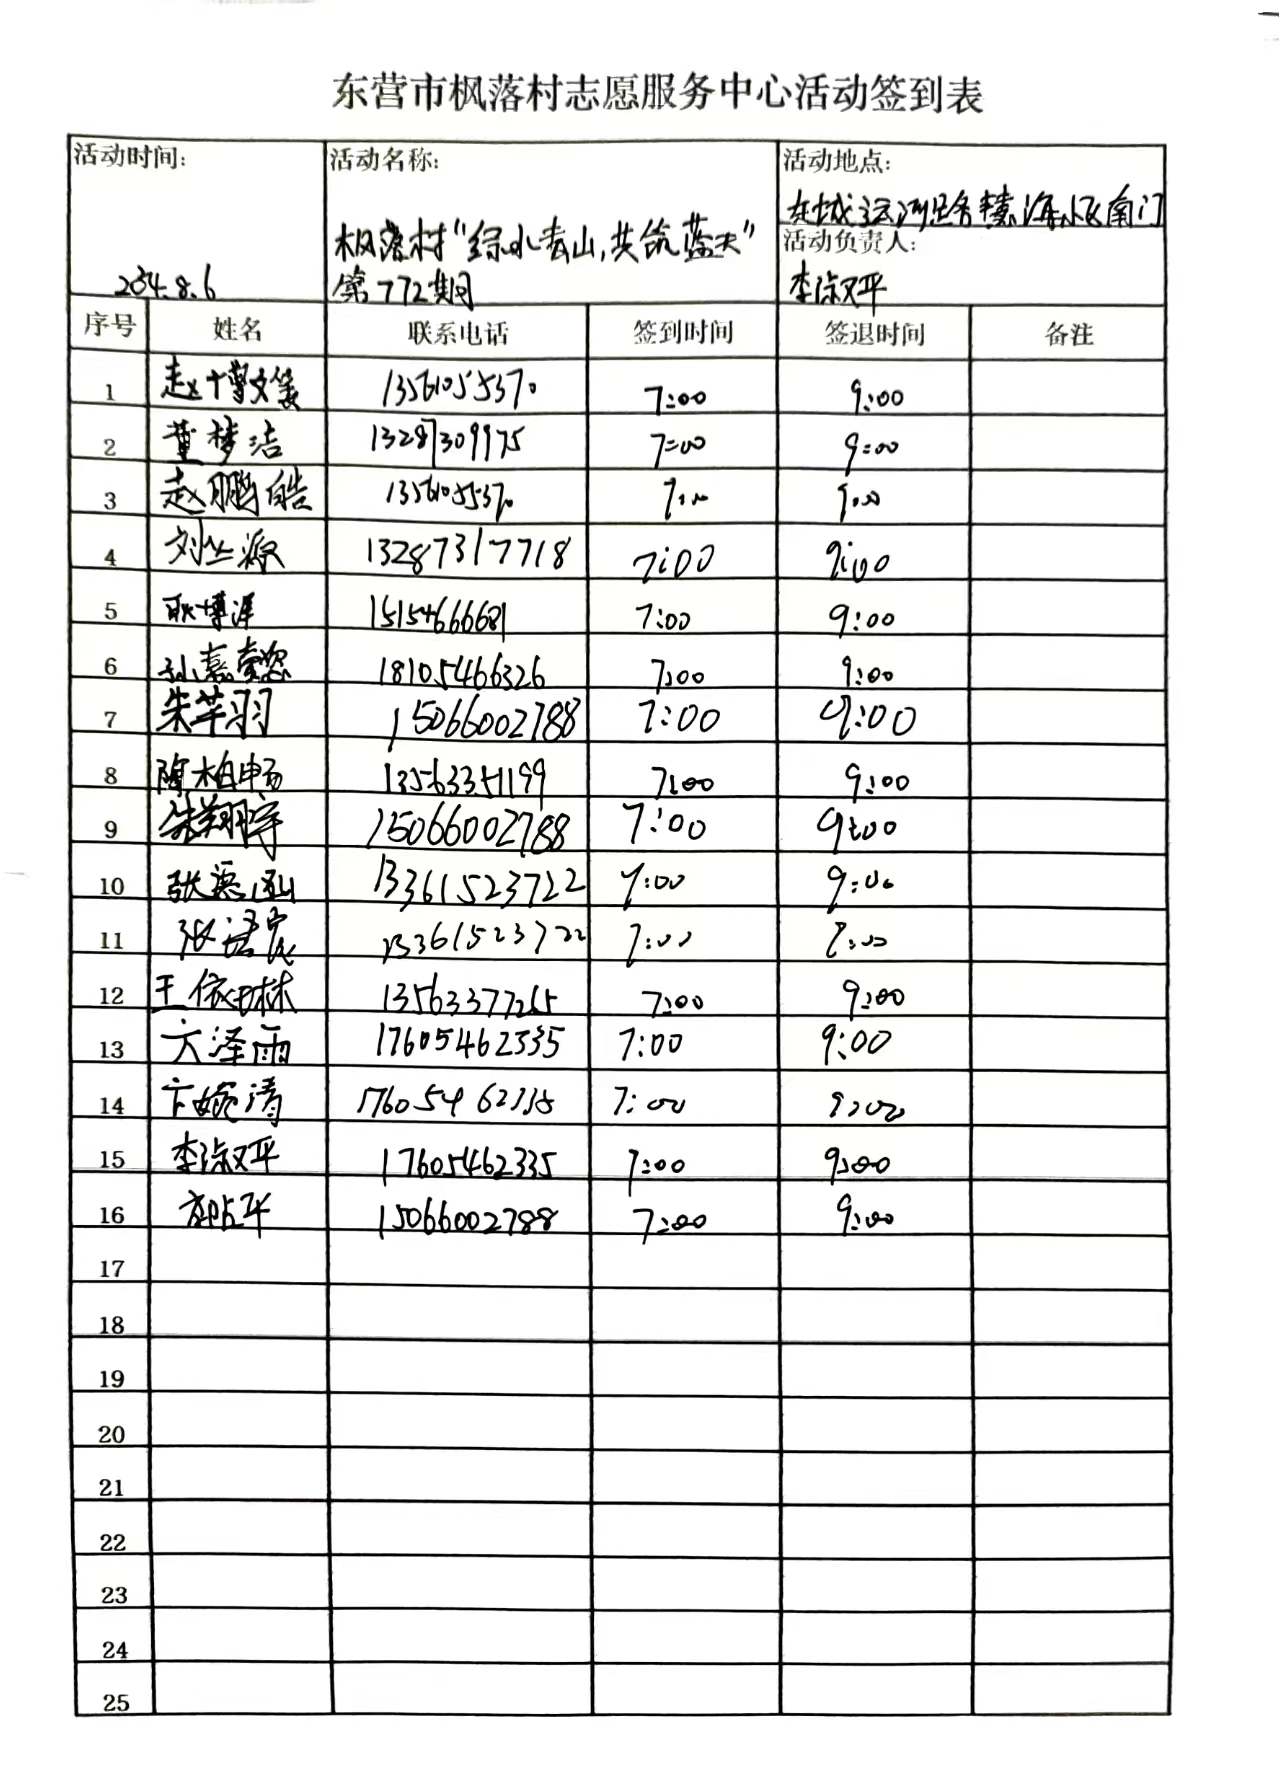 东营市枫落村志愿服务中心活动签到表
活动时间: 活动名称: 活动地点:
南门
枫落村“绿水青山,共筑蓝天” 活动负责人:
8.6 第772期 李淑平
序号 姓名 联系电话 签到时间 签退时间 备注
1 赵博文 13561055370 7:00 9:00
2 董梦洁 13287309975 7:00 9:00
3 赵鹏皓 13561055370 7:00 9:00
4 刘丛源 13287317718 7:00 9:00
5 耿博洋 15154666681 7:00 9:00
6 孙嘉 18105466326 7:00 9:00
7 朱芊羽 15066002788 7:00 9:00
8 陈柏畅 13563351199 7:00 9:00
9 朱翔宇 15066002788 7:00 9:00
10 张 13361523722 7:00 9:00
11 张 13361523722 7:00 9:00
12 王依林 13563377265 7:00 9:00
13 泽雨 17605462335 7:00 9:00
14 卞婉清 17605462335 7:00 9:00
15 李淑平 17605462335 7:00 9:00
16 15066002788 7:00 9:00
17
18
19
20
21
22
23
24
25